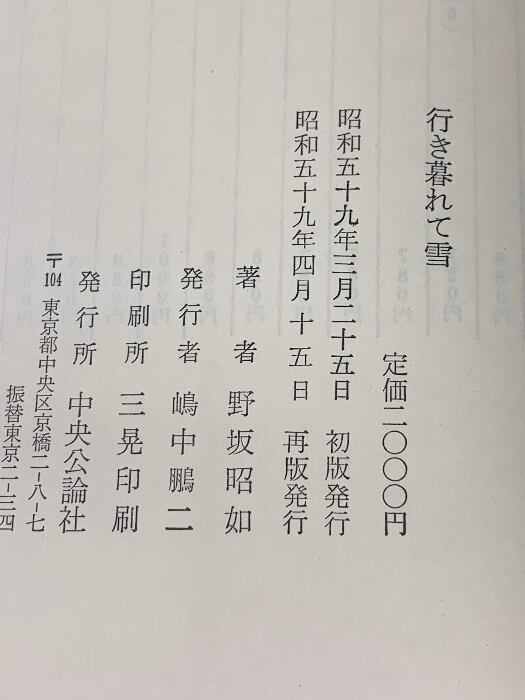 行き暮れて雪
定価二〇〇〇円
昭和五十九年三月二十五日 初版発行
昭和五十九年四月十五日 再版発行
著者 野坂昭如
発行者 嶋中鵬二
印刷所 三晃印刷
発行所 中央公論社
〒104 東京都中央区京橋二-八-七
振替東京二-三四